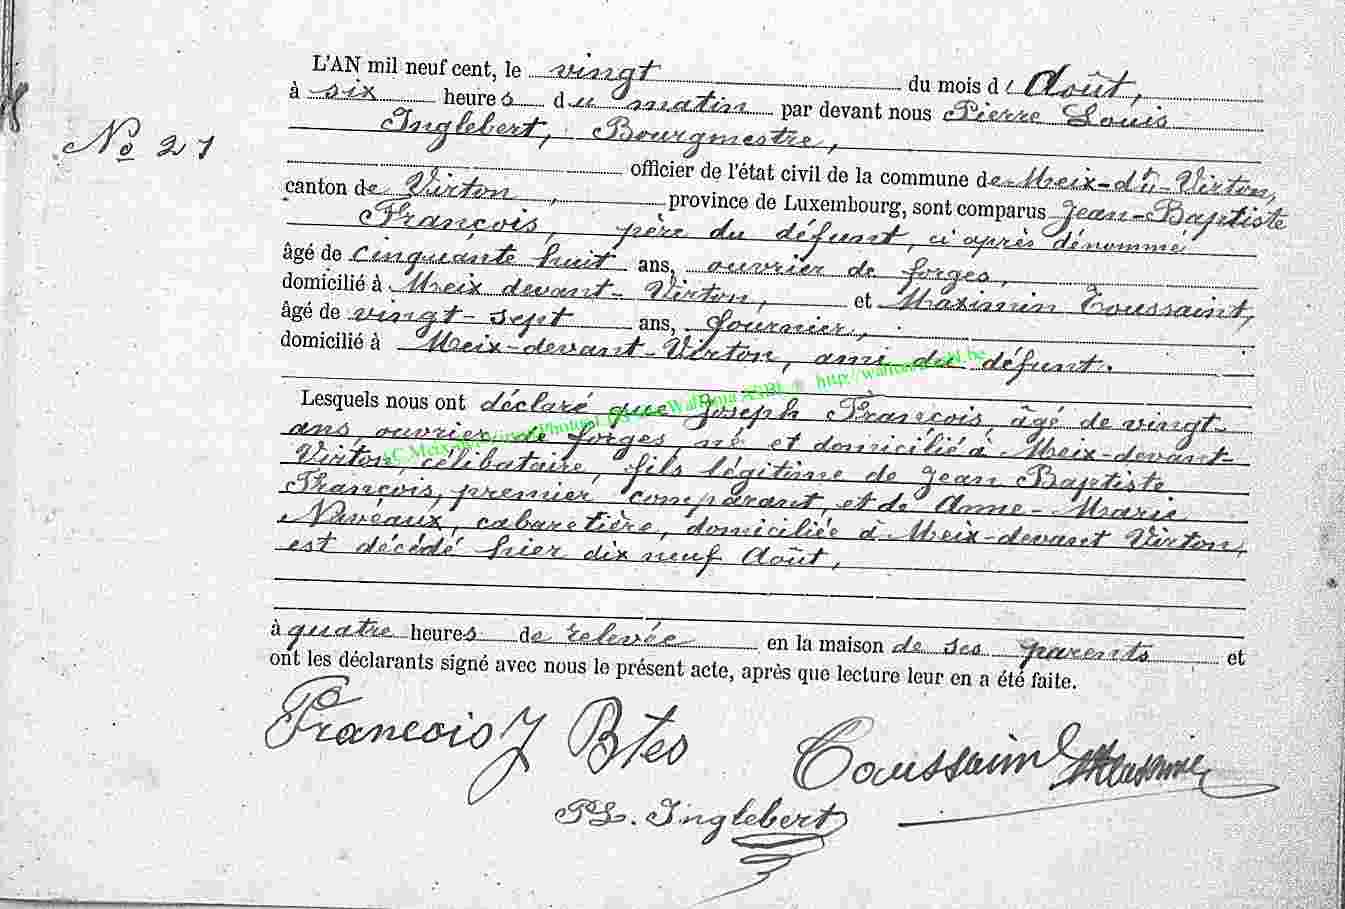 L'AN mil neuf cent, le vingt du mois d Août,
à six heures du matin par devant nous Pierre Louis
Inglebert, Bourgmestre,
Nº 21
officier de l'état civil de la commune de Meix-dt-Virton,
canton de Virton, province de Luxembourg, sont comparus Jean-Baptiste
François, père du défunt, ci après dénommé
âgé de cinquante huit ans, ouvrier de forges,
domicilié à Meix devant-Virton, et Maximin Toussaint,
âgé de vingt-sept ans, fournier,
domicilié à Meix-devant-Virton, ami du défunt.
Lesquels nous ont déclaré que Joseph François, âgé de vingt
ans, ouvrier de forges né et domicilié à Meix-devant-
Virton, célibataire, fils légitime de Jean Baptiste
François, premier comparant, et de Anne-Marie
Naveaux, cabaretière, domiciliée à Meix-devant Virton,
est décédé hier dix neuf Août,
à quatre heures de relevée en la maison de ses parents et
ont les déclarants signé avec nous le présent acte, après que lecture leur en a été faite.
Francois J Btes Toussaint
PL. Inglebert